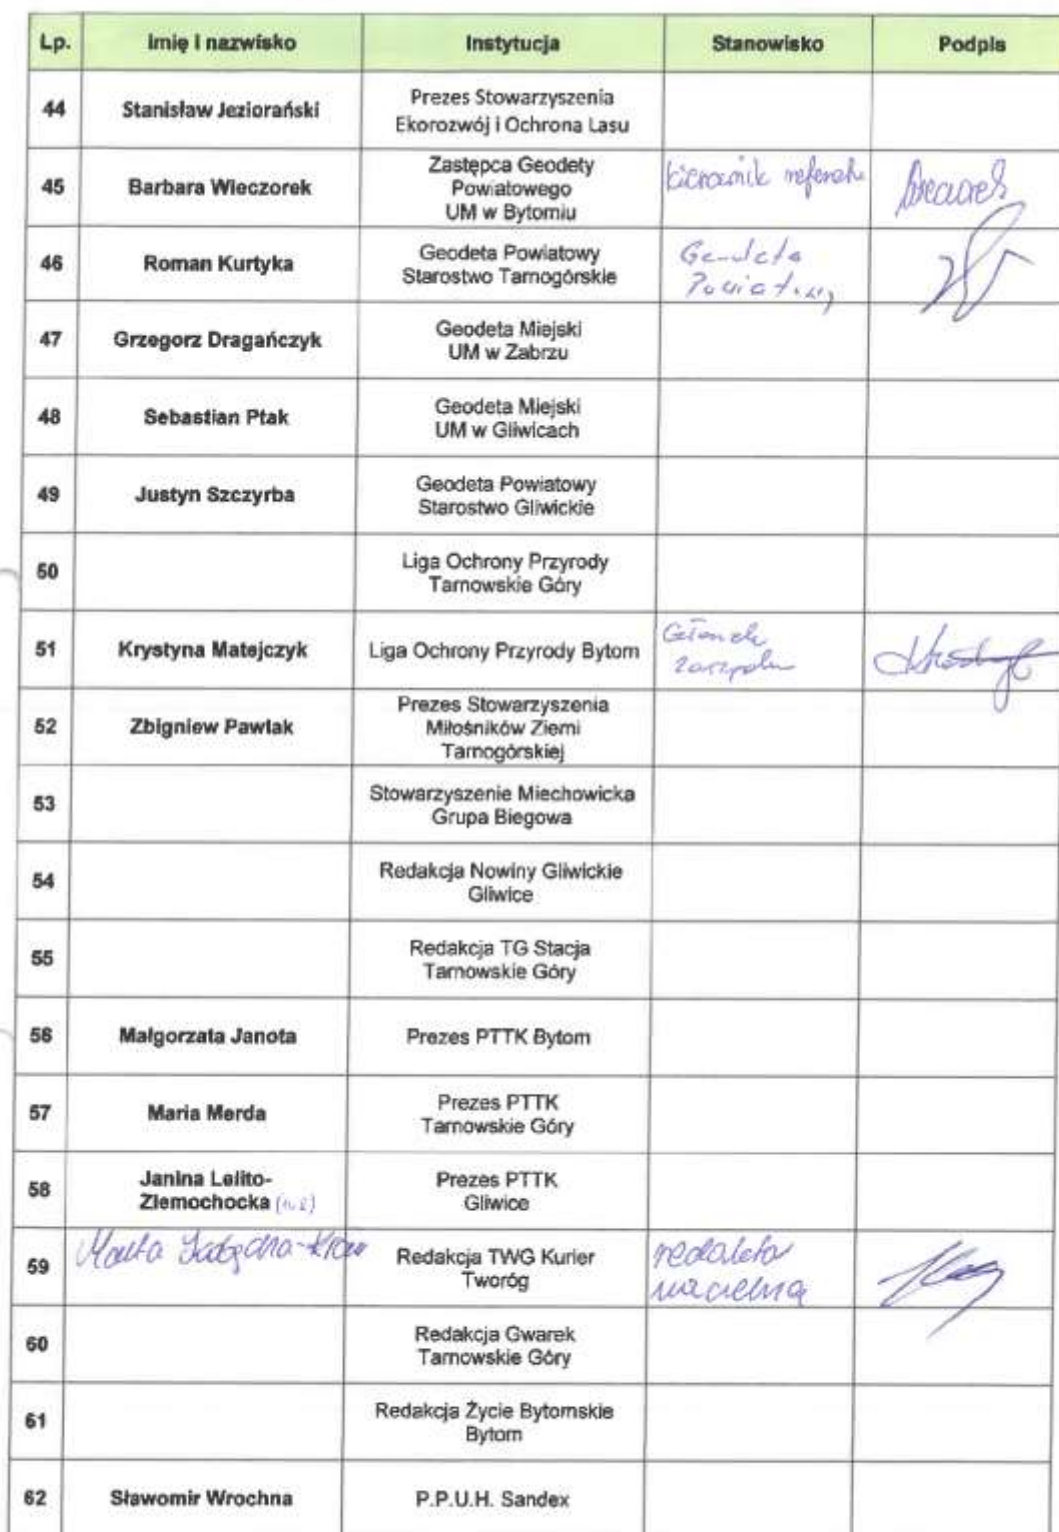 Lp. Imię i nazwisko Instytucja Stanowisko Podpis
44 Stanisław Jeziorański Prezes Stowarzyszenia
Ekorozwój i Ochrona Lasu
45 Barbara Wieczorek Zastępca Geodety
Powiatowego
UM w Bytomiu
kierownik referatu
46 Roman Kurtyka Geodeta Powiatowy
Starostwo Tarnogórskie
Geodeta
Powiatowy
47 Grzegorz Dragańczyk Geodeta Miejski
UM w Zabrzu
48 Sebastian Ptak Geodeta Miejski
UM w Gliwicach
49 Justyn Szczyrba Geodeta Powiatowy
Starostwo Gliwickie
50 Liga Ochrony Przyrody
Tarnowskie Góry
51 Krystyna Matejczyk Liga Ochrony Przyrody Bytom
Członek
zarządu
52 Zbigniew Pawlak Prezes Stowarzyszenia
Miłośników Ziemi
Tarnogórskiej
53 Stowarzyszenie Miechowicka
Grupa Biegowa
54 Redakcja Nowiny Gliwickie
Gliwice
55 Redakcja TG Stacja
Tarnowskie Góry
56 Małgorzata Janota Prezes PTTK Bytom
57 Maria Merda Prezes PTTK
Tarnowskie Góry
58 Janina Lelito-
Ziemochocka
Prezes PTTK
Gliwice
59 Redakcja TWG Kurier
Tworóg
redaktor
naczelna
60 Redakcja Gwarek
Tarnowskie Góry
61 Redakcja Życie Bytomskie
Bytom
62 Sławomir Wrochna P.P.U.H. Sandex